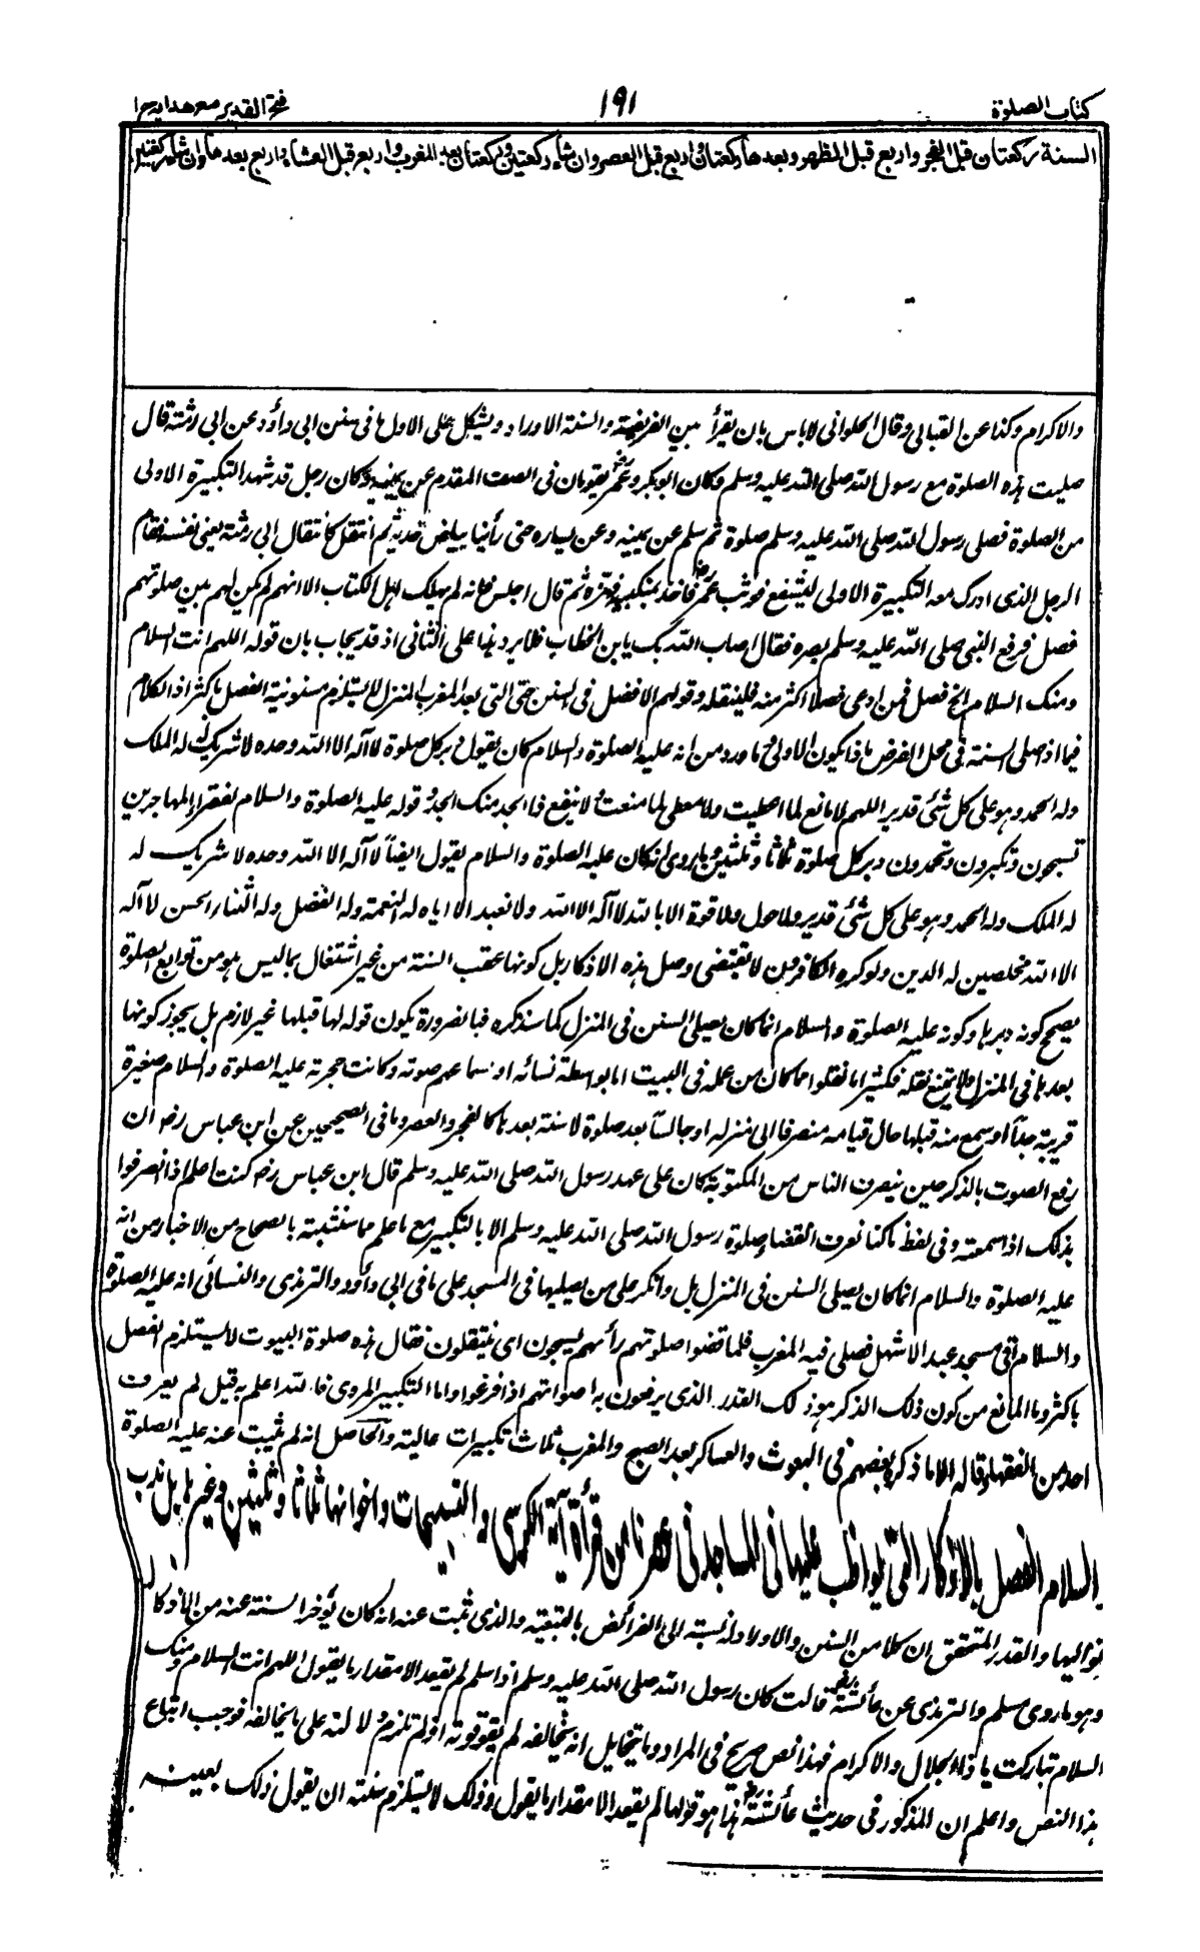 كتاب الصلوة
١٩١
فتح القدير مع هدايه ج ا
السنة ركعتان قبل الفجر واربع قبل الظهر وبعدها ركعتان واربع قبل العصر وان شاء ركعتين وركعتان بعد المغرب واربع قبل العشاء واربع بعدها وان شاء ركعتين
والاكرام وكذا عن البقالى وقال الحلوانى لاباس بان يقرأ بين الفريضة والسنة الاوراد ويشكل على الاول ما فى سنن ابى داؤد عن ابى رمثة قال
صليت هذه الصلوة مع رسول الله صلى الله عليه وسلم وكان ابوبكر وعمر يقومان فى الصف المقدم عن يمينه وكان رجل قد شهد التكبيرة الاولى
من الصلوة فصلى رسول الله صلى الله عليه وسلم صلوة ثم سلم عن يمينه وعن يساره حتى رأينا بياض خديه ثم انتقل كانتقال ابى رمثة يعنى نفسه فقام
الرجل الذى ادرك معه التكبيرة الاولى ليشفع فوثب عمر فاخذ بمنكبه فهزه ثم قال اجلس فانه لم يهلك اهل الكتاب الا انهم لم يكن لهم بين صلوتهم
فصل فرفع النبى صلى الله عليه وسلم بصره فقال اصاب الله بك يا ابن الخطاب ولا يرد هذا على الثانى اذ قد يجاب بان قوله اللهم انت السلام
ومنك السلام الخ فصل فمن ادعى فصلا اكثر منه فلينقله وقولهم الافضل فى السنن حتى التى بعد المغرب المنزل لا يستلزم مسنونية الفصل باكثر اذ الكلام
فيما اذا صلى السنة فى محل الفرض ماذا يكون الاولى وما ورد من انه عليه الصلوة والسلام كان يقول دبر كل صلوة لا اله الا الله وحده لا شريك له له الملك
وله الحمد وهو على كل شئ قدير اللهم لا مانع لما اعطيت ولا معطى لما منعت ولا ينفع ذا الجد منك الجد وقوله عليه الصلوة والسلام لفقراء المهاجرين
تسبحون وتكبرون وتحمدون دبر كل صلوة ثلاثا وثلثين وما روى انه كان عليه الصلوة والسلام يقول ايضاً لا اله الا الله وحده لا شريك له
له الملك وله الحمد وهو على كل شئ قدير ولا حول ولا قوة الا بالله لا اله الا الله ولا نعبد الا اياه له النعمة وله الفضل وله الثناء الحسن لا اله
الا الله مخلصين له الدين ولو كره الكافرون لا تقتضى وصل هذه الاذكار بل كونها عقب السنة من غير اشتغال بما ليس هو من توابع الصلوة
يصح كونه دبرها وكونه عليه الصلوة والسلام انما كان يصلى السنن فى المنزل كما سنذكره فبالضرورة يكون قوله لها قبلها غير لازم بل يجوز كونها
بعدها فى المنزل ولا يمتنع نقله فكثيرا ما نقلوا ما كان من عمله فى البيت اما بواسطة نسائه او سماعهم صوته وكانت حجرته عليه الصلوة والسلام صغيرة
قريبة جداً او سمع منه قبلها حال قيامه منصرفا الى منزله او جالساً بعد صلوة لا سنة بعدها كالفجر والعصر وما فى الصحيحين عن ابن عباس رض ان
رفع الصوت بالذكر حين ينصرف الناس من المكتوبة كان على عهد رسول الله صلى الله عليه وسلم قال ابن عباس رض كنت اعلم اذا انصرفوا
بذلك اذا سمعته وفى لفظ ما كنا نعرف انقضاء صلوة رسول الله صلى الله عليه وسلم الا بالتكبير مع ما علم مما سنثبته بالصحاح من الاخبار من انه
عليه الصلوة والسلام انما كان يصلى السنن فى المنزل بل وانكر على من يصليها فى المسجد على ما فى ابى داؤد والترمذى والنسائى انه عليه الصلوة
والسلام اتى مسجد عبد الاشهل فصلى فيه المغرب فلما قضوا صلوتهم رأهم يسبحون اى يتنفلون فقال هذه صلوة البيوت لا يستلزم الفصل
باكثر وما المانع من كون ذلك الذكر هو ذلك القدر الذى يرفعون به اصواتهم اذا فرغوا واما التكبير المروى فالله اعلم به قيل لم يعرف
احد من الفقهاء قاله الا ما ذكره بعضهم فى البعوث والعساكر بعد الصبح والمغرب ثلاث تكبيرات عالية والحاصل انه لم يثبت عنه عليه الصلوة
والسلام الفصل بالاذكار التى يواظب عليها فى المساجد فى عصرنا من قرأة آية الكرسى والتسبيحات واخواتها ثلاثا وثلثين وغيرها بل ندب
هو اليها والقدر المتحقق ان كلا من السنن والاوراد له نسبة الى الفرائض بالتبعية والذى ثبت عنه انه كان يؤخر السنة عنه من الاذكار
وهو ما روى مسلم والترمذى عن عائشة قالت كان رسول الله صلى الله عليه وسلم اذا سلم لم يقعد الا مقدار ما يقول اللهم انت السلام ومنك
السلام تباركت يا ذا الجلال والاكرام فهذا نص صريح فى المراد وما يتخايل انه يخالفه لم يقو قوته اذ لم تلزم دلالته على ما يخالفه فوجب اتباع
هذا النص واعلم ان المذكور فى حديث عائشة هذا هو قولها لم يقعد الا مقدار ما يقول وذلك لا يستلزم سنية ان يقول ذلك بعينه